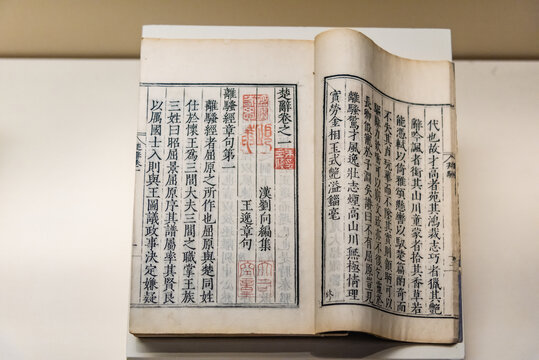 代也故才高者苑其鴻裁巧者獵其艷
辭吟諷者銜其山川童蒙者拾其香草若
能憑軾以倚雅頌懸轡以馭楚篇酌奇而
不失其真翫華而不墜其實則顧盼可以
驅辭力欬唾可以窮文致亦不復乞靈於
長卿假寵於子淵矣贊曰不有屈原豈見
離騷驚才風逸壯志煙高山川無極情理
實勞金相玉式艷溢錙毫
楚辭卷之一
漢劉向編集
王逸章句
離騷經章句第一
離騷經者屈原之所作也屈原與楚同姓
仕於懷王爲三閭大夫三閭之職掌王族
三姓曰昭屈景屈原序其譜屬率其賢良
以厲國士入則與王圖議政事決定嫌疑